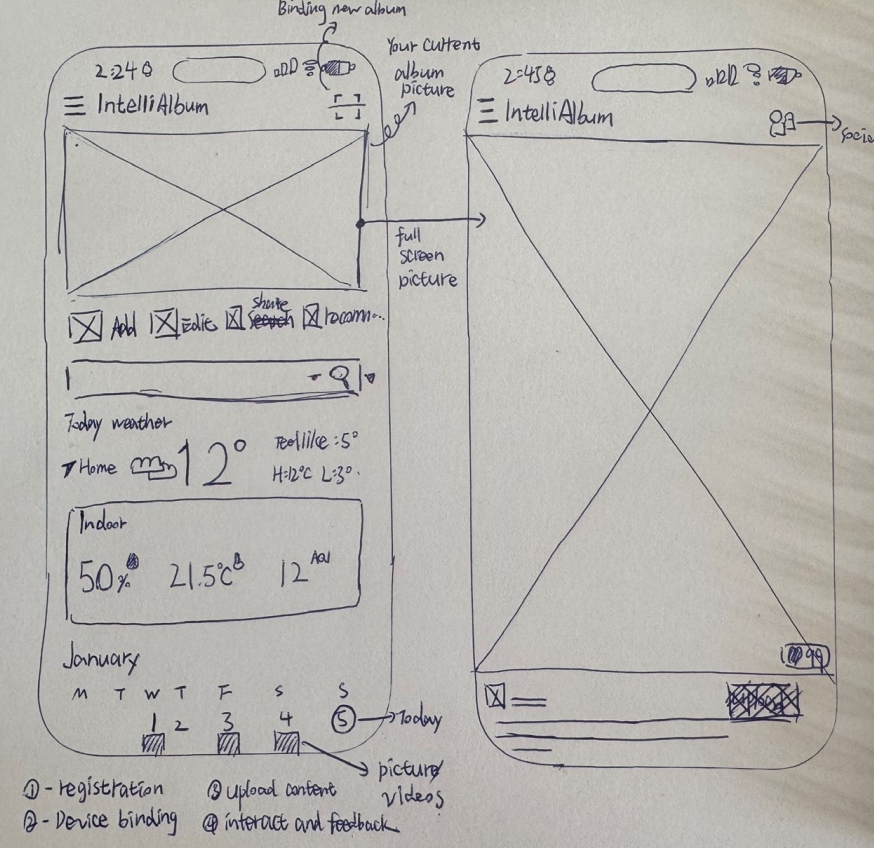 Binding new album
Your current
album
picture
2:24
IntelliAlbum
full
screen
picture
Add
Edit
share
search
recomm...
Today weather
Home
12°
Feellike :5°
H:12°C L:3°.
Indoor
50%
21.5°C
12 AQI
January
M T W T F S S
1 2 3 4 5
Today
picture/
videos
①-registration
②-Device binding
③ upload content
④ interact and feedback
2:45
IntelliAlbum
99